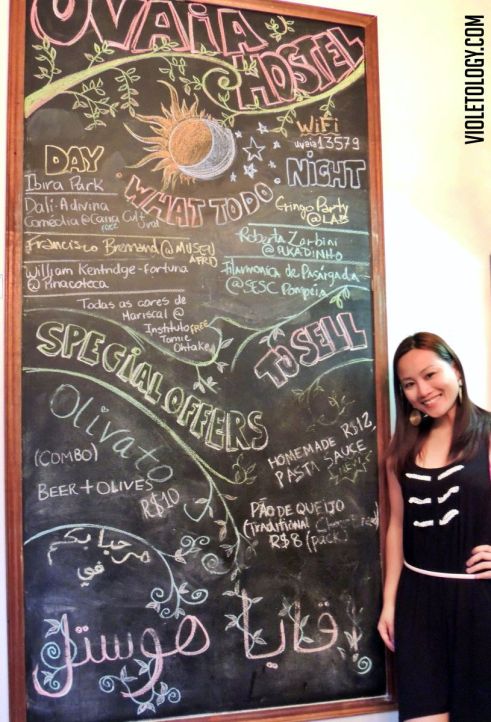 UVAIA
HOSTEL
VIOLETOLOGY.COM
WiFi
uvaia13579
DAY
WHAT TO DO
NIGHT
Ibira Park
Dali - A divina
Comédia @ Caixa Cult
FREE
Francisco Brennand @ MUSEU
AFRO
William Kentridge - fortuna
@ Pinacoteca
Todas as cores de
Mariscal @
Instituto FREE
Tomie
Ohtake
Gringo Party
@ LAB
Roberta Zarbini
@
Filarmonica de Pasárgada
@ SESC Pompeia
SPECIAL OFFERS
TO SELL
Olivato
(COMBO)
BEER + OLIVES
R$10
HOMEMADE R$12
PASTA SAUCE
NEW
PÃO DE QUEIJO
(Traditional
R$8 (pack)
مرحبا بكم
في
ڤايا هوستل